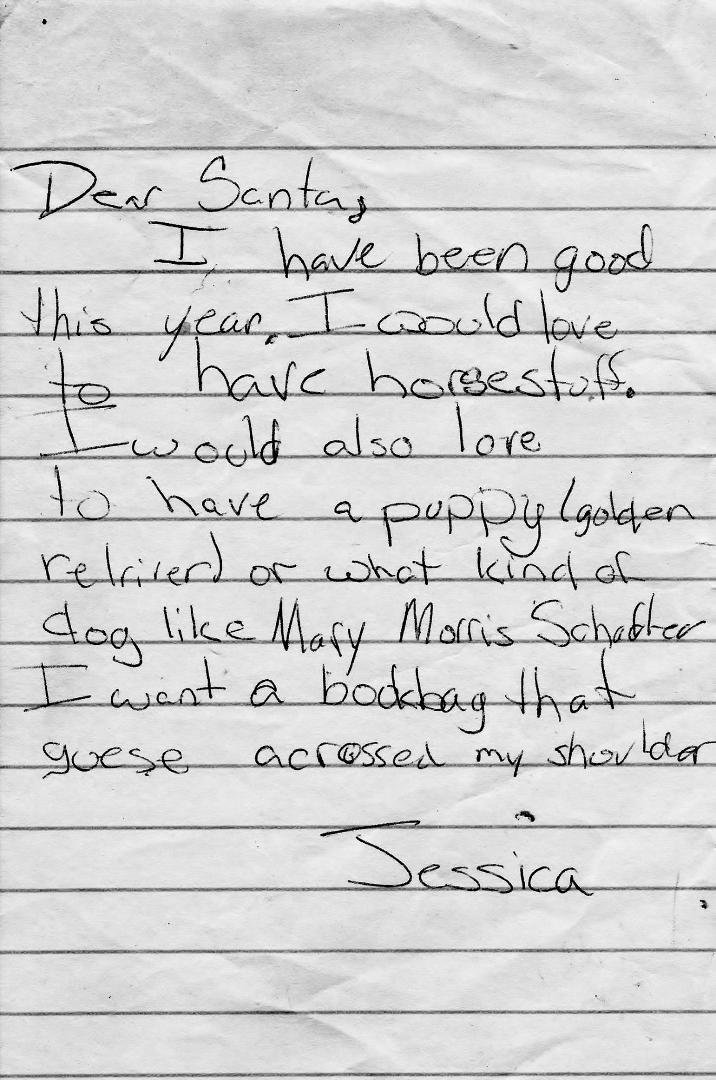 Dear Santa,
I have been good
this year. I would love
to have horsestuff.
I would also love
to have a puppy (golden
retriver) or what kind of
dog like Mary Morris
I want a bookbag that
guese acrossed my shoulder
Jessica